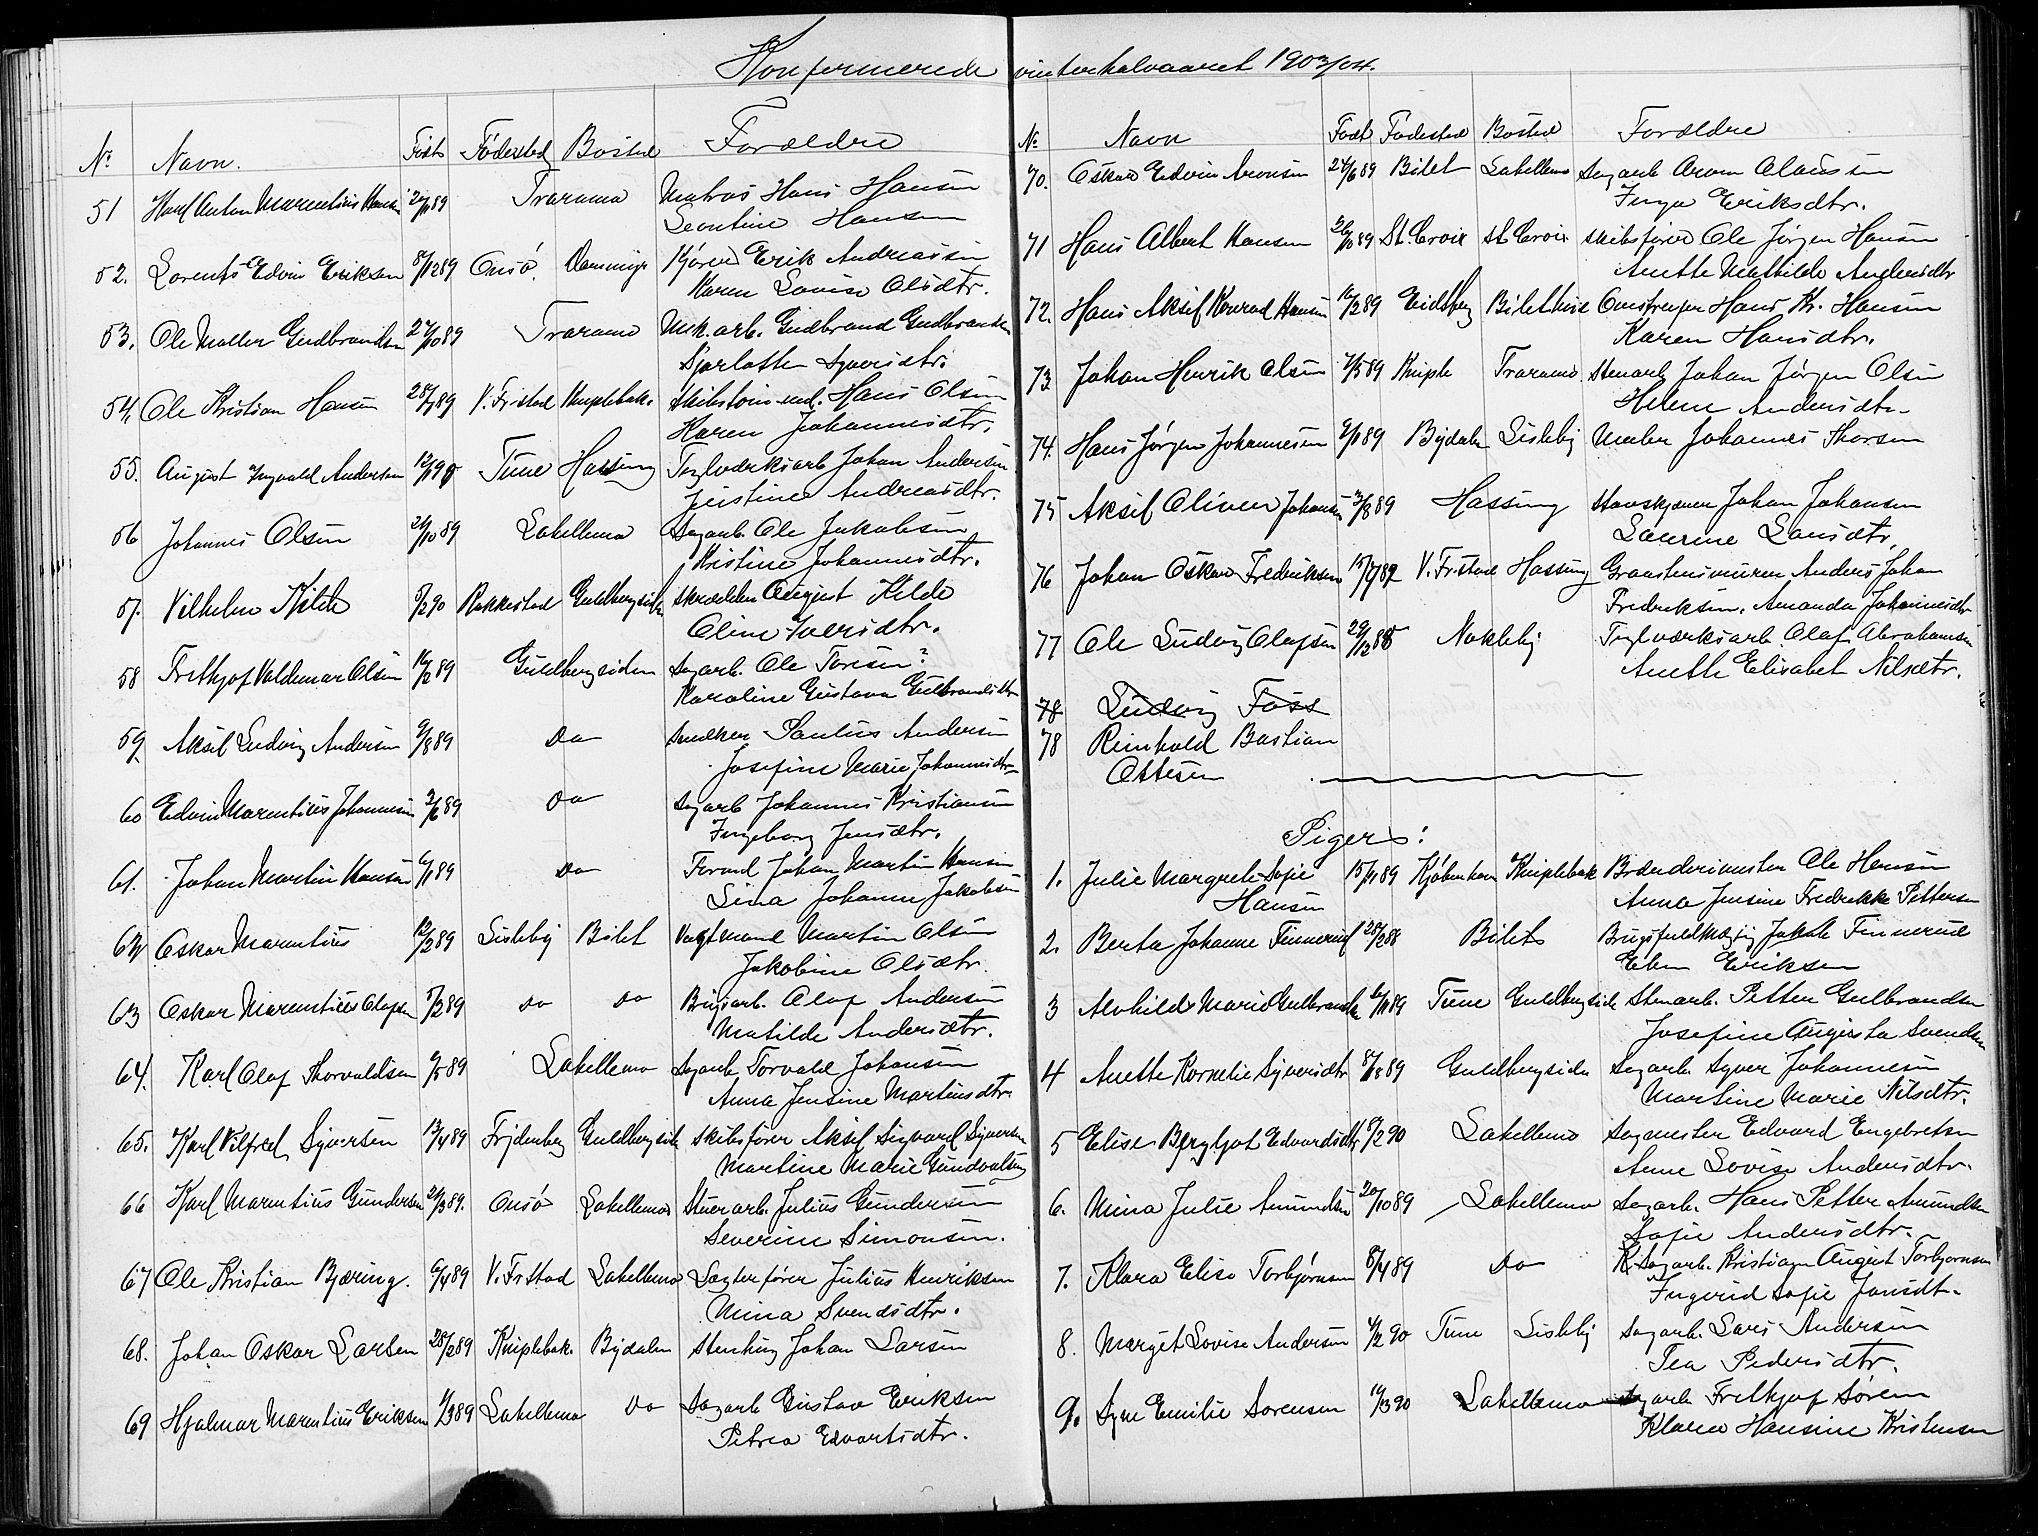 Konfirmerede vinterhalvaaret 1903/04.
No Navn. Født Fødested Bosted Forældre
51 Karl Anton Marentius Hansen 22/11 89 Trarama Matros Hans Hansen
Leontine Hansen
52. Lorents Edvin Eriksen 8/12 89 Onsø Kjører Erik Andreassen
Karen Lovise Olsdtr.
53. Ole Møller Gudbrandsen 27/10 89 Trarama Mek. arb. Gudbrand Gudbrandsen
Sjarlotte Syversdtr.
54, Ole Kristian Hansen 28/7 89 V. Frstad Kniplebak. Hans Olsen
Karen Johannesdtr.
55. August Ingvald Andersen Tune Hassing Teglværksarb Johan Andersen
Justine Andreasdtr.
56 Johannes Olsen 26/10 89 Lahellemo Sagarb. Ole Jakobsen
Kristine Johannesdtr.
57. Vilhelm Kilde 5/2 90 Rakkestad Guldbergsiden Skrædder August Kilde
Oline Iversdtr.
58 Frithjof Valdemar Olsen 16/2 89 Guldbergsiden Sagarb. Ole Toresen?
Karoline Gustava Gulbrandsdtr
59. Aksel Ludvig Andersen 9/8 89 Do Snedker Paulus Andersen
Josefine Marie Johannesdtr
60 Edvin Marentius Johannesen 3/6 89 Do Sagarb Johannes Kristiansen
Ingeborg Jensdtr.
61. Johan Martin Hansen 6/1 89 Do Formd Johan Martin Hansen
Lina Johanne Jakobsen
62 Oskar Marentius 12/2 89 Lisleby Bilet Vagtmand Martin Olsen
Jakobine Olsdtr.
63 Oskar Marentius Olafsen 5/2 89 do do Brugsarb. Olaf Andersen
Matilde Andersdtr.
64. Karl Olaf Thorvaldsen 9/5 89 Lahellemo Sagarb Torvald Johansen
Anna Jensine Martinsdtr
65. Karl Vilfred Syversen 13/4 89 Guldbergsiden Skibsfører Aksel Sigvard Syversen
Martine Marie Gundvaldsen
66 Karl Marentius Gundersen 24/3 89. Onsø Lahellemo Stuerarb. Julius Gundersen
Severine Simonsen.
67 Ole Kristian Bjæring. 6/4 89 V. Frstad Lahellemo Lægterfører Julius Henriksen
Mina Svendsdtr.
68. Johan Oskar Larsen 28/2 89 Kniplebak. Bydalen Stenhug Johan Larsen
69 Hjalmar Marentius Eriksen 1/3 89 Lahellemo Do Sagarb Gustav Eriksen
Petrea Edvartsdtr.
No Navn Født Fødested Bosted Forældre
70. Oskar Edvin Aronsen 24/6 89 Bilet Lahellemo Sagarb Aron Olaussen
Inga Eriksdtr.
71 Hans Albert Hansen 26/10 89 St. Croix St. Croix Skibsfører Ole Jørgen Hansen
Anette Mathilde Andersdtr
72. Hans Aksel Konrad Hansen 16/2 89 Eidsberg Hans Kr. Hansen
Karen Hansdtr.
73 Johan Henrik Olsen 7/5 89 Kniple Trarama Stenarb Johan Jørgen Olsen
Helene Andersdtr
74. Hans Jørgen Johannesen 9/1 89 Bydalen Lisleby Maler Johannes Thorsen
75 Aksel Oliver Johansen 3/8 89 Hassing Johan Johansen
Laurine Larsdtr
76 Johan Oskar Fredriksen 15/7 89 V. Frstad Hassing Graastensmurer Anders Johan
Fredriksen. Amanda Johannesdtr
77 Ole Ludvig Olafsen 29/12 88 Nokleby Teglværksarb. Olaf Abrahamsen
Anette Elisabet Nilsdtr.
78 Ludvig Foss
78 Reinhold Bastian
Ottesen
Piger:
1. Julie Margrete Sofie 15/11 89 Kjøbenhavn Kniplebak Brænderimester Ole Hansen
Hansen Anna Jensine Fredrikke Pettersen
2. Berta Johanne Finnerud 28/2 88 Bilet Brugsfuldmægtig Jakob Finnerud
Elen Eriksen
3 Alvhilde Marie Gulbrandsen 6/11 89 Tune Guldbergsiden Stenarb. Petter Gulbrandsen
Josefine Augusta Svendsen
4 Anette Kornelie Syversdtr 8/8 89 Guldbergsiden Sagarb. Syver Johannesen
Martine Marie Nilsdtr.
5 Elise Bergljot Edvardsdtr 6/2 90 Lahellemo Sagmester Edvard Engebretsen
Anne Lovise Andersdtr.
6. Mina Julie Amundsen 20/10 89 Lahellemo Sagarb. Hans Petter Amundsen
Sofie Andersdtr.
7. Klara Elise Torbjørnsen 8/4 89 Do Sagarb. Kristian August Torbjørnsen
Ingerid Sofie Jonsdtr.
8. Margit Lovise Andersen 4/2 90 Tune Lisleby Sagarb. Lars Andersen
Tea Pedersdtr.
9. Syne Emilie Sørensen 16/3 90 Lahellemo Sagarb Frithjof Søren
Klara Hansine Kristensen